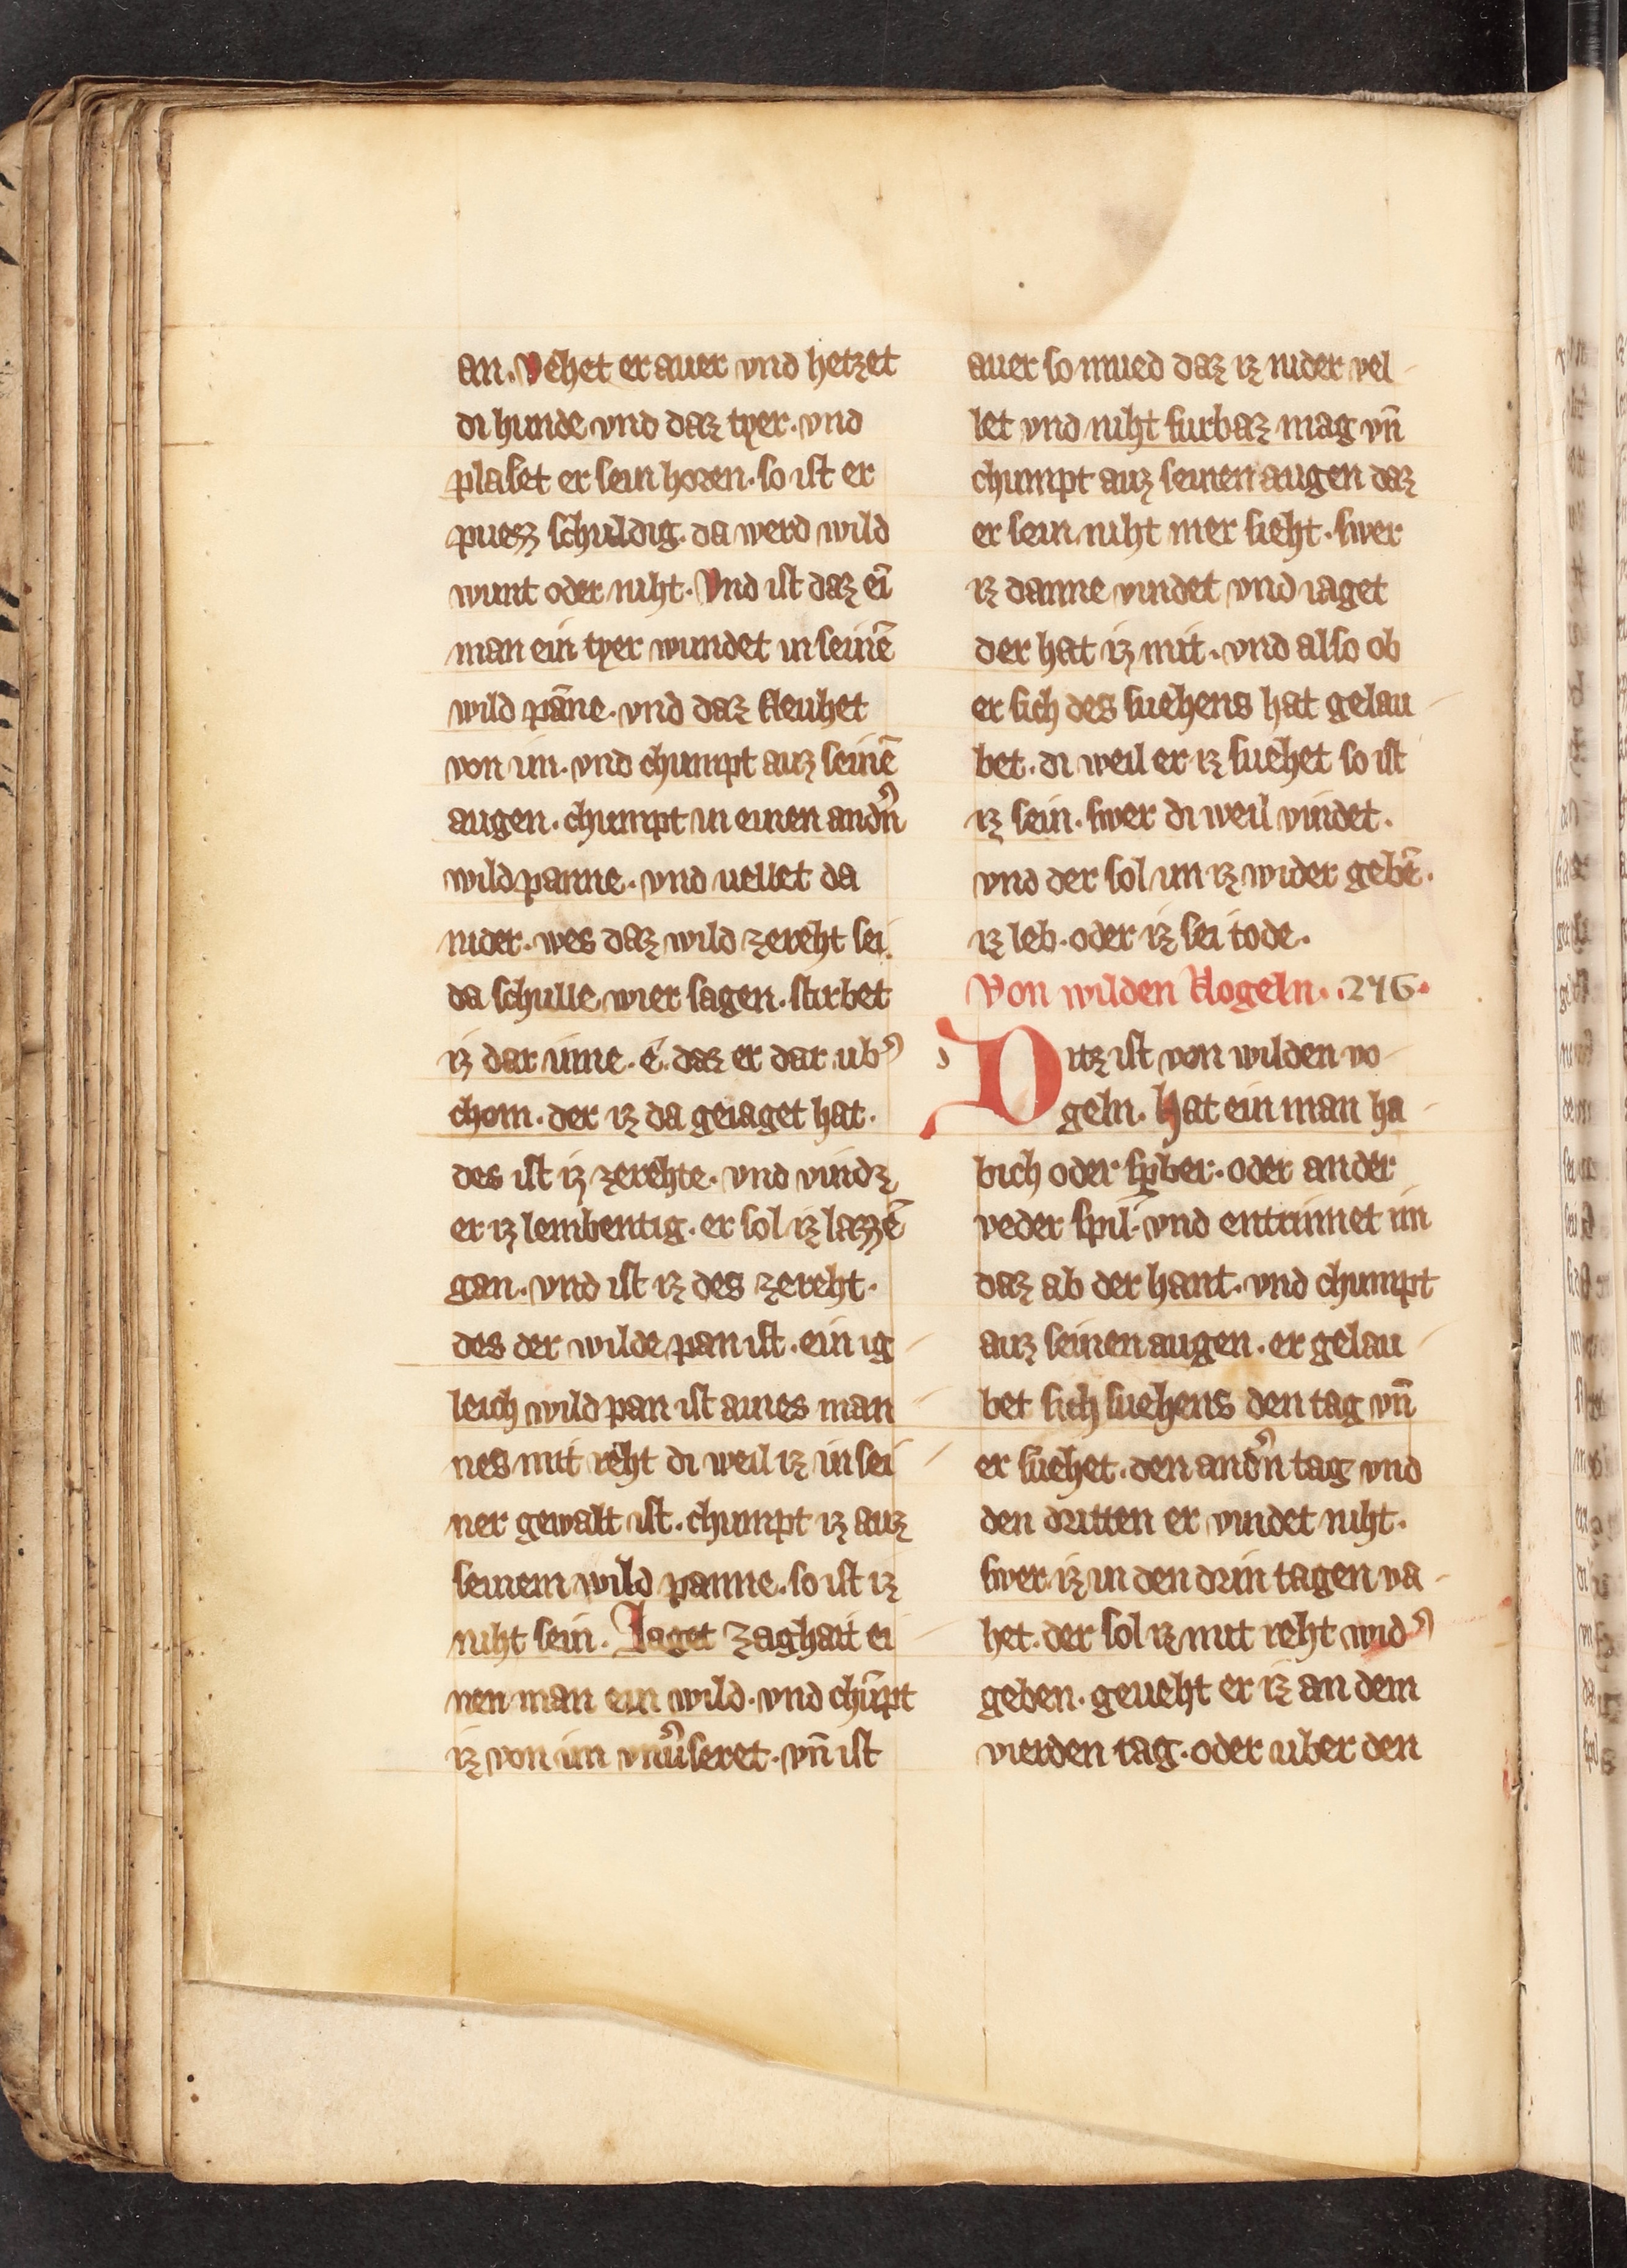 an. Vehet er auer vnd hetzet
di hunde vnd daz tyer. vnd
plaset er sein horen. so ist er
puezz schuldig. da werd wild
wunt oder niht. Vnd ist daz eī
man ein tyer wundet in seinē
wild pāne. vnd daz fleuhet
von im. vnd chumpt auz seinē
augen. chumpt in einen andn̄
wildpanne. vnd uellet da
nider. wes daz wild zereht sei.
da schulle wier sagen. stirbet
iz dar inne. E. daz er dar ub̾
chom. der iz da geiaget hat.
des ist iz zerehte. vnd vindz
er iz lembentig. er sol iz lazzē
gan. vnd ist iz des zereht.
des der wilde pan ist. ein ig
leich wild pan ist aines man
nes mit reht di weil iz in sei
ner gewalt ist. chumpt iz auz
seinem wild panne. so ist iz
niht sein. Iaget zaghait ei
nen man ein wild. vnd chūpt
iz von im vnv̾seret. vn̄ ist
auer so mued daz iz nider vel
let vnd niht furbaz mag vn̄
chumpt auz seinen augen daz
er sein niht mer sieht. swer
iz danne vindet vnd iaget
der hat iz mit. vnd also ob
er sich des suehens hat gelau
bet. di weil er iz suehet so ist
iz sein. swer di weil vindet.
vnd der sol im iz wider gebē.
iz leb. oder iz sei tode.
Von wilden Vogeln. .276.
Ditz ist von wilden vo
geln. Hat ein man ha
bich oder sp̱ber. oder ander
veder spil. vnd entrinnet im
daz ab der hant. vnd chumpt
auz seinen augen. er gelau
bet sich suehens den tag vn̄
er suehet. den and̾n tag vnd
den dritten er vindet niht.
swer iz in den drin tagen va
het. der sol iz mit reht wid̾
geben. geueht er iz an dem
vierden tag. oder uber den